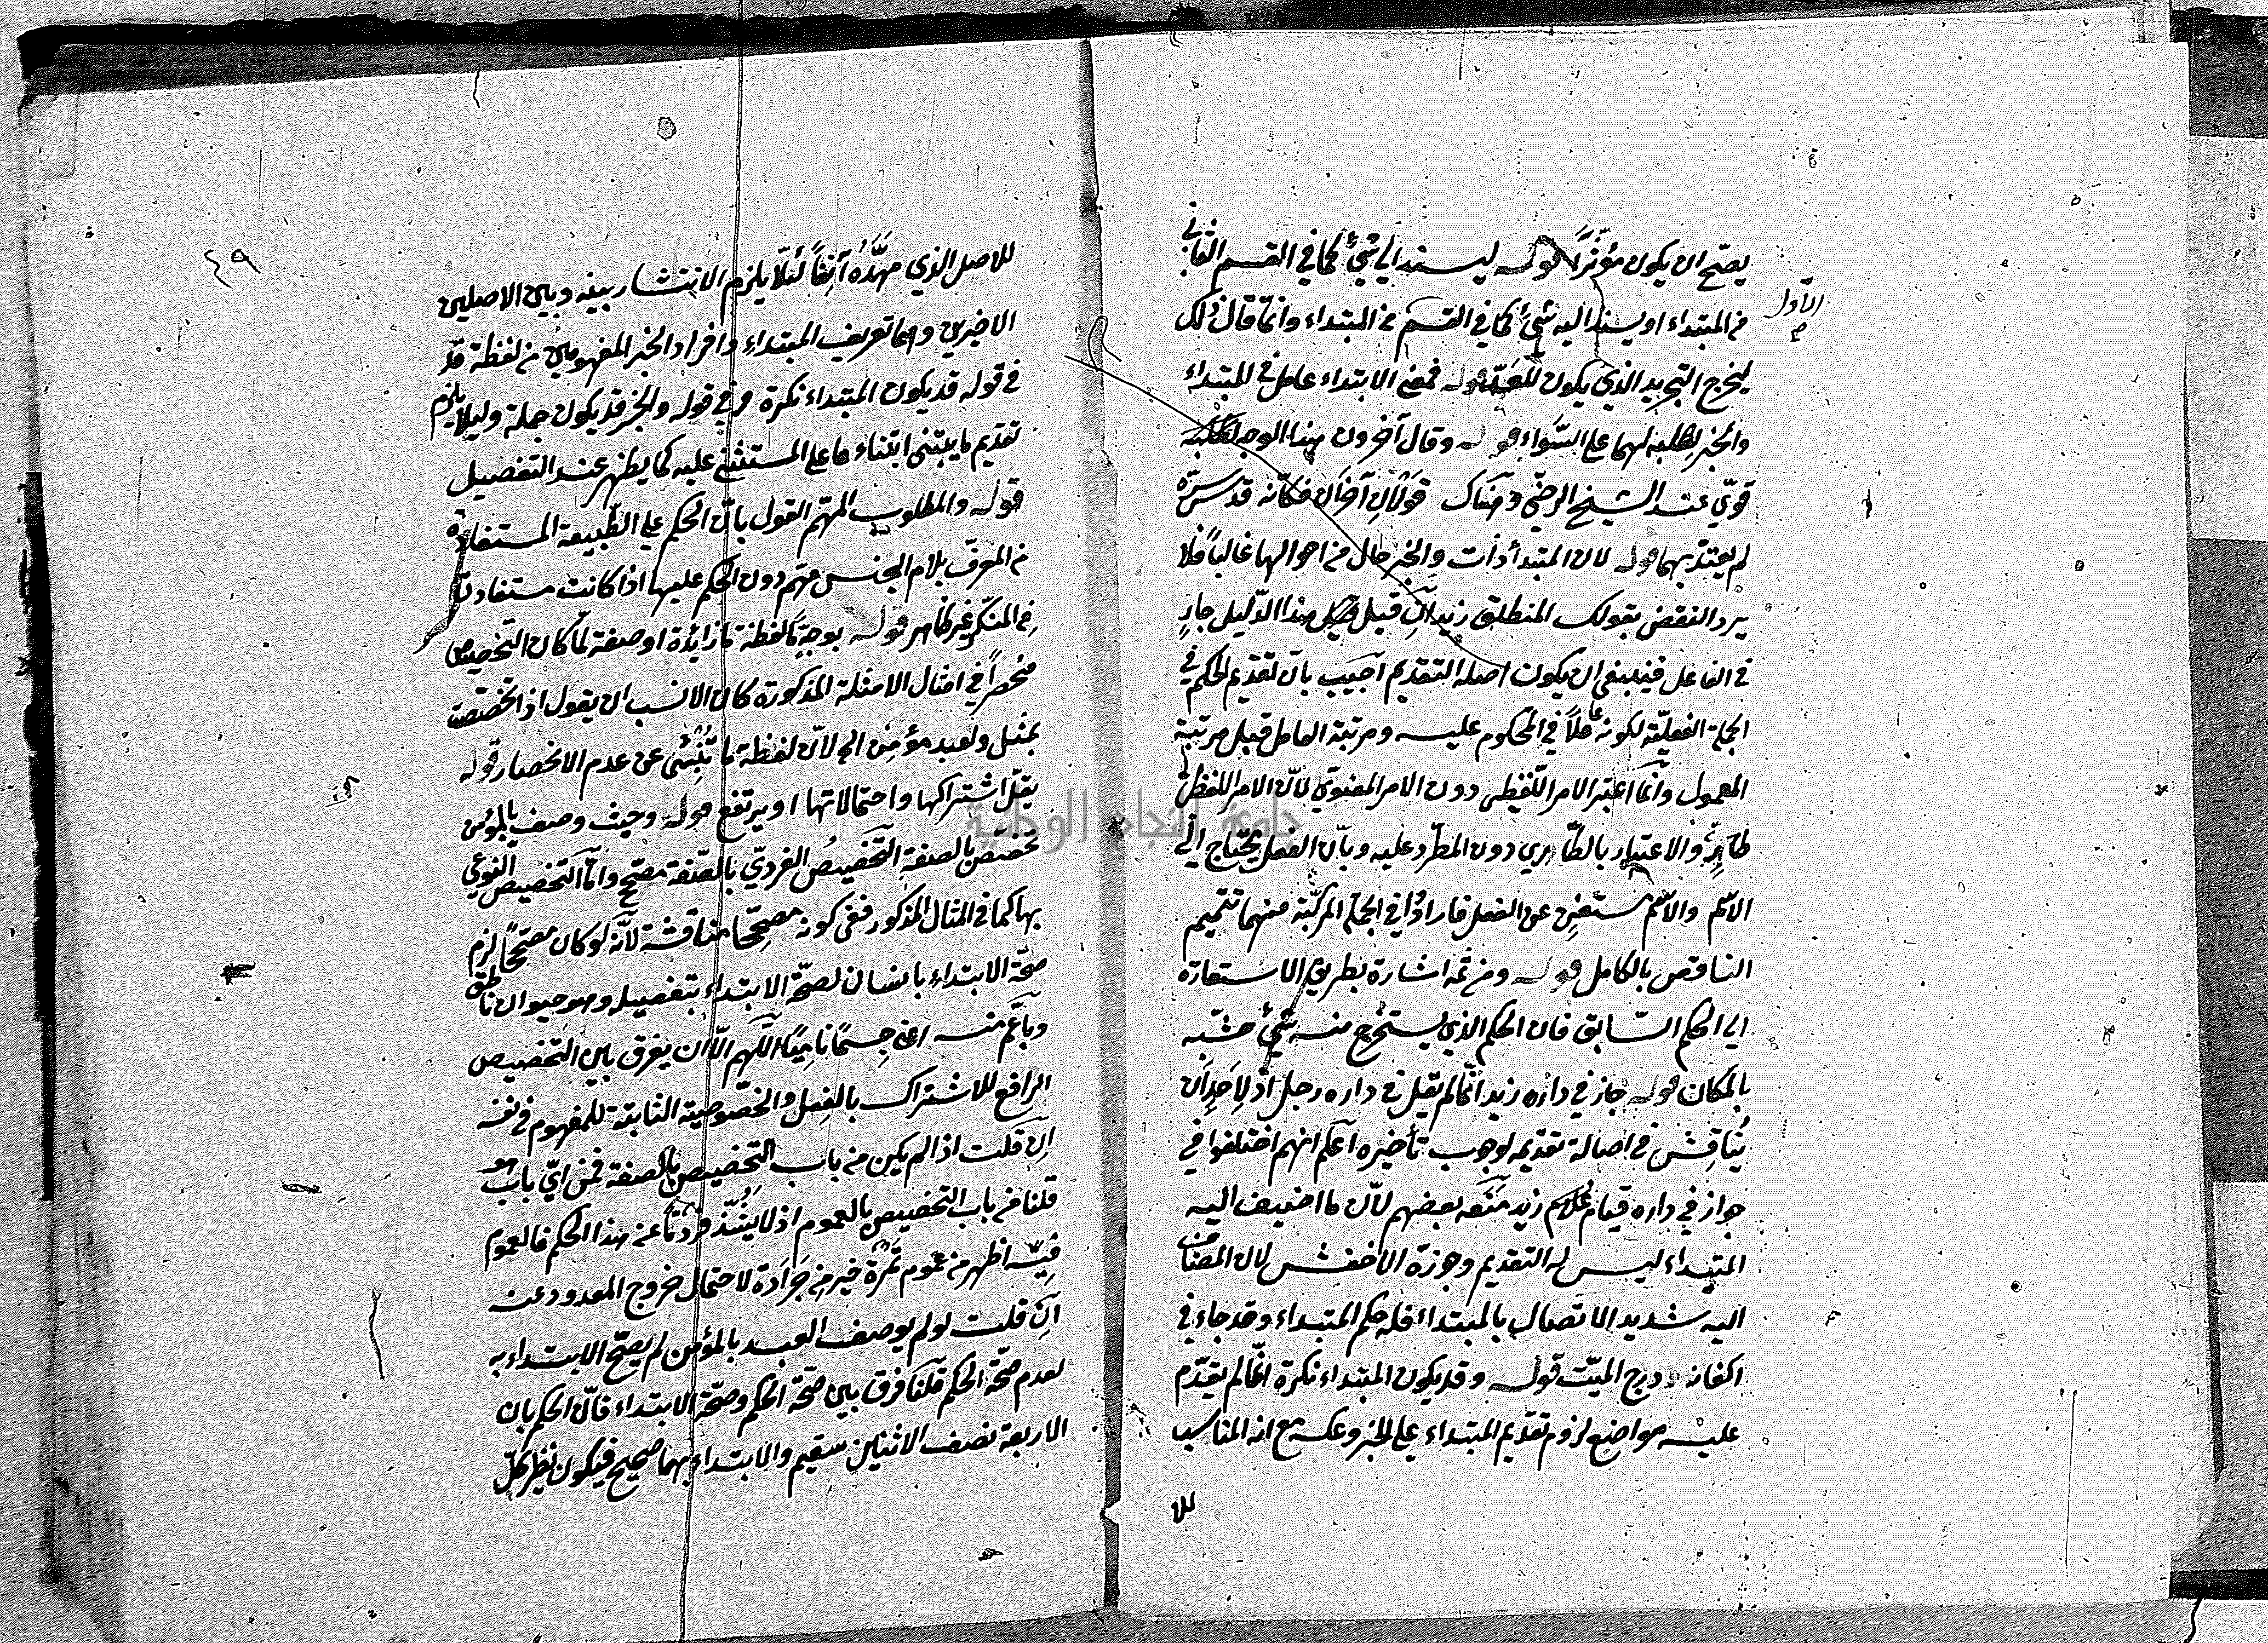 يصحّ ان يكون مؤثرًا قوله ليسند الي شئ كما في القسم الثاني
من المبتداء او يسند اليه شئ كما في القسم من المبتداء وانما قال ذلك
الاول
ليخرج التجريد الذي يكون للعدّ قوله فمعنى الابتداء عامل في المبتداء
والخبر لطلبه لهما علي السّواء قوله وقال آخرون هذا الوجه
قويّ عند الشيخ الرضيّ وهناك قولان آخران فكانّه قدس سرّه
لم يعتدّ بهما قوله لان المبتدأ ذات والخبر حال من احوالها غالبًا فلا
يرد النقض بقولك المنطلق زيد ان قيل هذا الدّليل جارٍ
في الفاعل فينبغي ان يكون اصله التقديم اجيب بان تقديم الحكم في
الجملة الفعليّة لكونه عاملًا في المحكوم عليه ومرتبة العامل قبل مرتبة
المعمول وانما اعتبر الامر اللّفظي دون الامر المعنويّ لانّ الامر اللفظيّ
ظاهر والاعتبار بالظّاهري دون المطرّد عليه وبانّ الفعل يحتاج الي
الاسم والاسم مستغنٍ عن الفعل فارادوا في الجملة المركّبة منهما تتميم
الناقص بالكامل قوله ومن ثمه اشارة بطريق الاستعارة
الي الحكم السّابق فان الحكم الذي يستخرج منه شئ مشبّه
بالمكان قوله جاز في داره زيد انما لم يقل في داره رجل اذ لِاَحَدٍ ان
يُناقِش في اصالة تقديمه لوجوب تأخيره اعلم انهم اختلفوا في
جواز في داره قيام زيد منعه بعضهم لانّ ما اضيف اليه
المبتداء ليس له التقديم وجوزه الاخفش لان المضاف
اليه شديد الاتصال بالمبتداء فله حكم المبتداء وقد جاء في
اكفانه درج الميّت قوله وقد يكون المبتداء نكرة انما لم يقدّم
عليه مواضع لزوم تقديم المبتداء علي الخبر وعكسه مع انه المناسب
للا
٤٩
للاصل الذي مهّده آنِفًا لئلّا يلزم الانتشار بينه وبين الاصلين
الاخيرين وهما تعريف المبتداء وافراد الخبر المفهومين من لفظة قد
في قوله قد يكون المبتداء نكرة وفي قوله والخبر قد يكون جملة وليلا يلزم
تقديم ما يبتنى ابتناء ما علي المستثنى عليه كما يظهر عند التفصيل
قوله والمطلوب المهمّ القول بانّ الحكم علي الطّبيعة المستفادة
من المعرّف بلام الجنس مهم دون الحكم عليها اذا كانت مستفادة
من المنكّر غير ظاهر قوله بوجهٍ مّا لفظة ما زائدة او صفة لمّا كان التخصيص
منحصرًا في امثال الامثلة المذكورة كان الانسب ان يقول اذا تخصّصت
بمثل ولعبد مؤمن الخ لانّ لفظة ما تُنبئ عن عدم الانحصار قوله
يقلّ اشتراكها واحتمالاتها او يرتفع قوله وحيث وصف بالمؤمن
تخصّص بالصفة التخصيصُ الفرديّ بالصّفة مصحّح وامّا التخصيص النوعي
بها كما في المثال المذكور ففي كونه مصحّحًا مناقشة لانّه لو كان مصحّحًا لزم
صحّة الابتداء بانسان لصحّة الابتداء بتفصيله وهو حيوان ناطق
وباعم منه اعني جسمًا ناميًا اللّهم الّا ان يفرق بين التخصيص
الرافع للاشتراك بالفعل والخصوصيّة الثابتة للمفهوم في نفسه
ان قلت اذا لم يكن من باب التخصيص بالصفة فمن ايّ باب هو
قلنا من باب التخصيص بالعموم اذ لا يشُذّ فردٌ مّا عن هذا الحكم فالعموم
فيه اظهر من عموم تمرة خير من جرادة لاحتمال خروج المعدود عنه
ان قلت لو لم يوصف العبد بالمؤمن لم يصحّ الابتداء به
لعدم صحّة الحكم قلنا فرق بين صحّة الحكم وصحّة الابتداء فانّ الحكم بان
الاربعة نصف الاثنين سقيم والابتداء بهما صحيح فيكون نظر كلّ
جامعة النجاح الوطنية